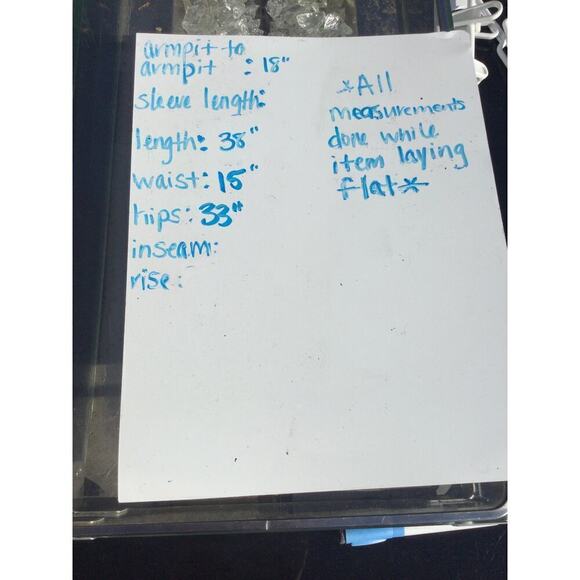 armpit to
armpit : 18"
sleeve length:
length: 38"
waist: 15"
hips: 33"
inseam:
rise:
*All
measurements
done while
item laying
flat*